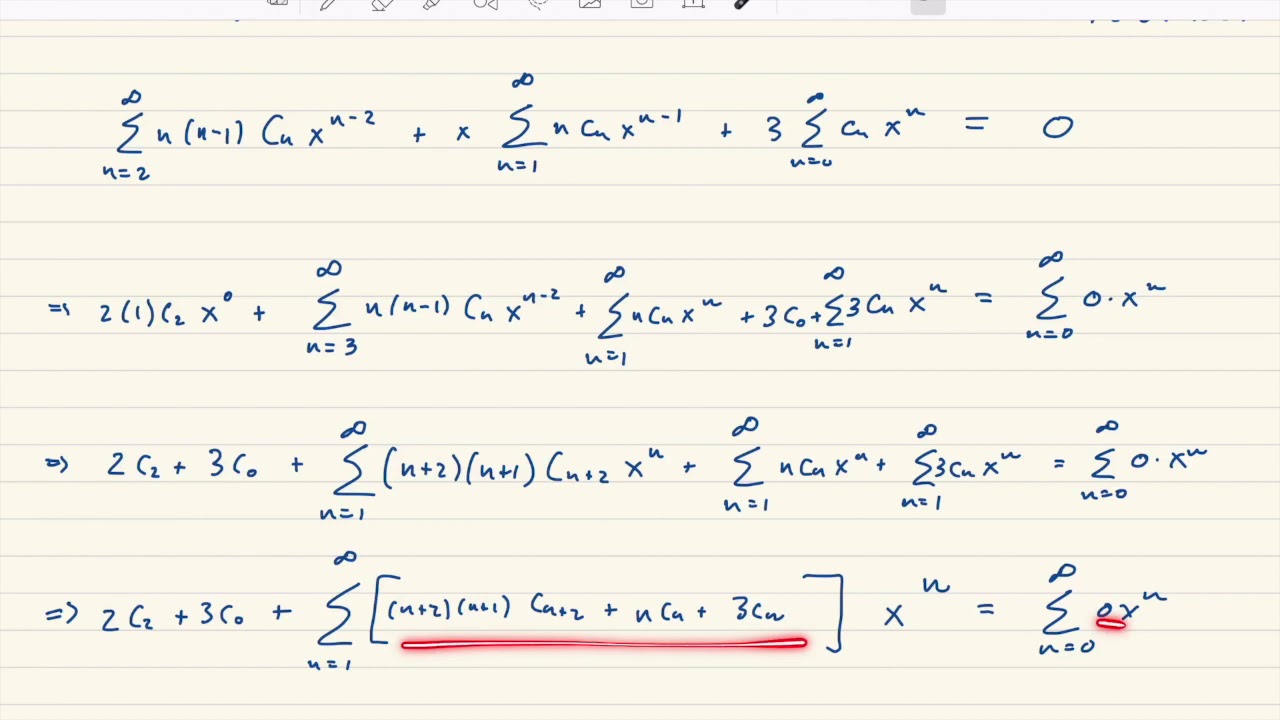 ∑_{n=2}^{∞} n(n-1) Cₙ x^{n-2} + x ∑_{n=1}^{∞} n Cₙ x^{n-1} + 3 ∑_{n=0}^{∞} Cₙ x^n = 0
=> 2(1)C₂ x^0 + ∑_{n=3}^{∞} n(n-1) Cₙ x^{n-2} + ∑_{n=1}^{∞} n Cₙ x^n + 3C₀ + ∑_{n=1}^{∞} 3Cₙ x^n = ∑_{n=0}^{∞} 0·x^n
=> 2C₂ + 3C₀ + ∑_{n=1}^{∞} (n+2)(n+1) C_{n+2} x^n + ∑_{n=1}^{∞} n Cₙ x^n + ∑_{n=1}^{∞} 3Cₙ x^n = ∑_{n=0}^{∞} 0·x^n
=> 2C₂ + 3C₀ + ∑_{n=1}^{∞} [(n+2)(n+1) C_{n+2} + n Cₙ + 3Cₙ] x^n = ∑_{n=0}^{∞} 0x^n